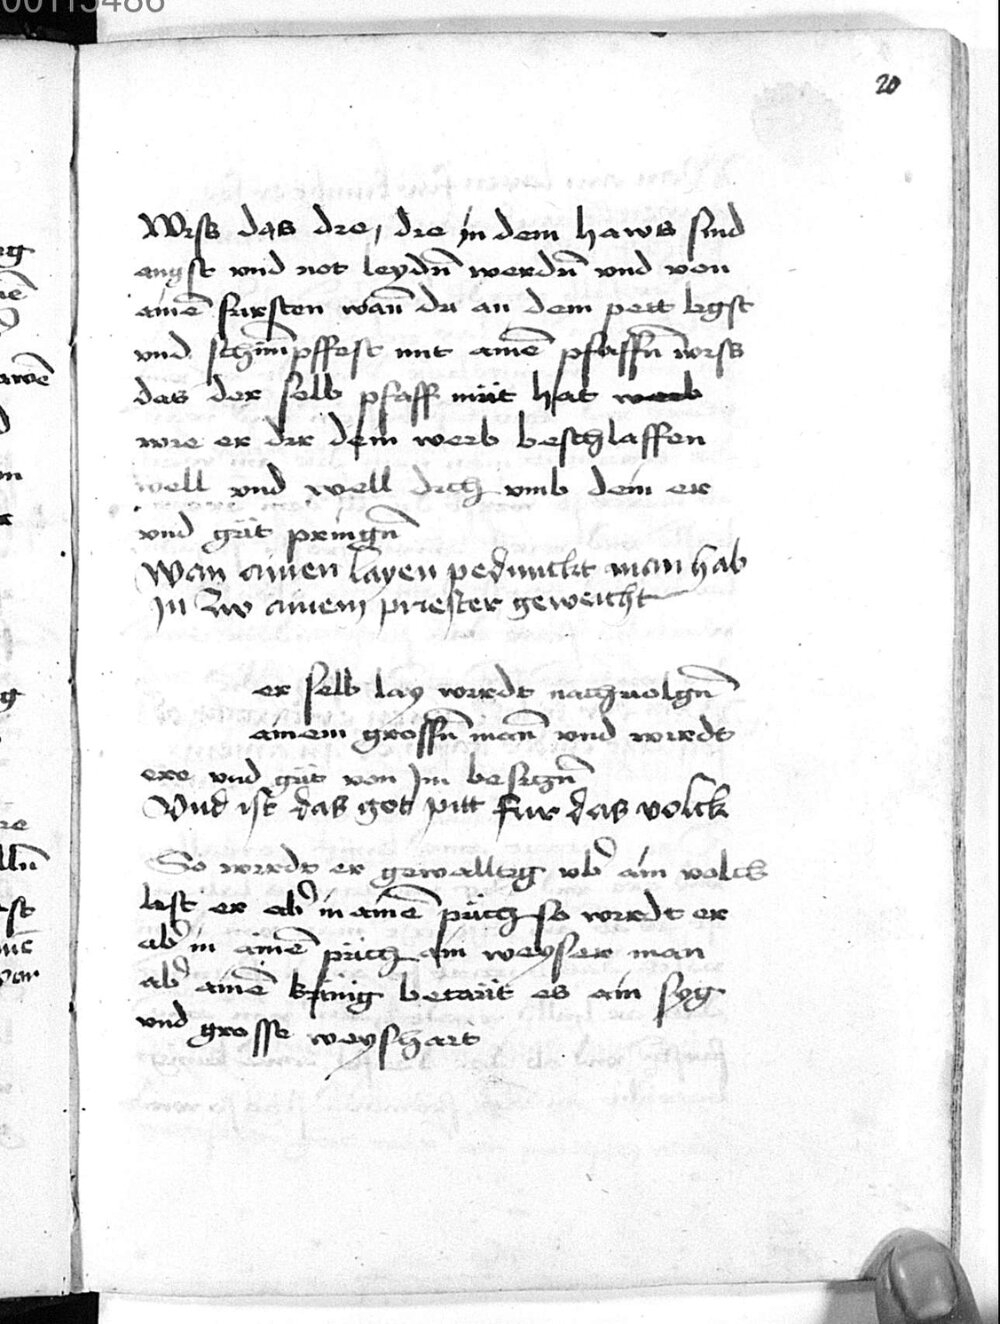 00115486
20
Wiss das die / die in dem haws sind
angst vnd not leydn̄ werdn̄ vnd von
ainē fursten wan̄ du an dem pett ligst
vnd schimpffest mit ainē pfaffn̄ wiss
das der selb pfaff müt hat
wie er dir dein weib beschlaffen
well vnd well dich vmb dein er
vnd güt pringn̄
Wan ainen layen pedunckt man hab
In zw ainem priester geweicht
er selb lay wirdt nachuolgn̄
ainem grossn̄ man̄ vnd wirdt
ere vnd güt von Im besiczn̄
Vnd ist das got pitt fur das volck
So wirdt er gewalltig vb̄ ain volck
list er ab̄ in ainē püch so wirdt er
ab̄ in ainē püch ain weyser man
ab̄ ainē künig betaüt es ain syg
vnd grosse weyshait